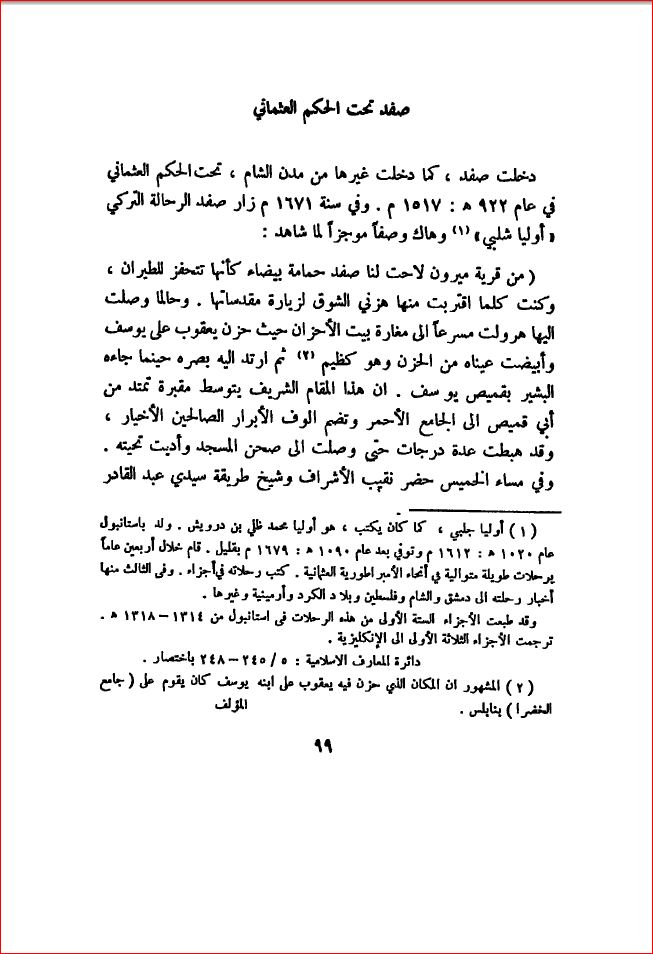 صفد تحت الحكم العثماني
دخلت صفد ، كما دخلت غيرها من مدن الشام ، تحت الحكم العثماني
في عام ٩٢٢ ﻫ : ١٥١٧ م . وفي سنة ١٦٧١ م زار صفد الرحالة التركي
« أوليا شلبي » (١) وهاك وصفاً موجزاً لما شاهد :
( من قرية ميرون لاحت لنا صفد حمامة بيضاء كأنها تتحفز للطيران ،
وكنت كلما اقتربت منها هزني الشوق لزيارة مقدساتها . وحالما وصلت
اليها هرولت مسرعاً الى مغارة بيت الأحزان حيث حزن يعقوب على يوسف
وأبيضت عيناه من الحزن وهو كظيم (٢) ثم ارتد اليه بصره حينما جاءه
البشير بقميص يوسف . ان هذا المقام الشريف يتوسط مقبرة تمتد من
أبي قميص الى الجامع الأحمر وتضم الوف الأبرار الصالحين الأخيار ،
وقد هبطت عدة درجات حتى وصلت الى صحن المسجد وأديت تحيته .
وفي مساء الخميس حضر نقيب الأشراف وشيخ طريقة سيدي عبد القادر
( ١ ) أوليا جلبي ، كما كان يكتب ، هو أوليا محمد ظلي بن درويش . ولد باستانبول
عام ١٠٢٠ ﻫ : ١٦١٢ م وتوفي بعد عام ١٠٩٠ ﻫ : ١٦٧٩ م بقليل . قام خلال أربعين عاماً
برحلات طويلة متوالية في أنحاء الأمبراطورية العثمانية . كتب رحلاته في أجزاء . وفي الثالث منها
أخبار رحلته الى دمشق والشام وفلسطين وبلاد الكرد وأرمينية وغيرها .
وقد طبعت الأجزاء الستة الأولى من هذه الرحلات في استانبول من ١٣١٤ – ١٣١٨ ﻫ .
ترجمت الأجزاء الثلاثة الأولى الى الإنكليزية .
دائرة المعارف الاسلامية : ٥ / ٢٤٥ – ٢٤٨ باختصار .
( ٢ ) المشهور ان المكان الذي حزن فيه يعقوب على ابنه يوسف كان يقوم على ( جامع
الخضرا ) بنابلس . المؤلف
٩٩